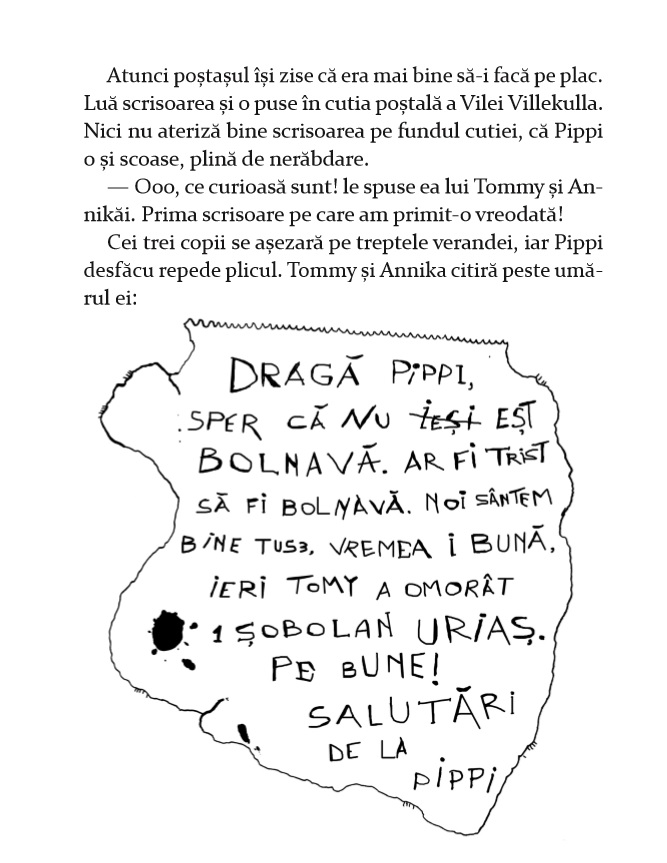 Atunci poștașul își zise că era mai bine să-i facă pe plac.
Luă scrisoarea și o puse în cutia poștală a Vilei Villekulla.
Nici nu ateriză bine scrisoarea pe fundul cutiei, că Pippi
o și scoase, plină de nerăbdare.
— Ooo, ce curioasă sunt! le spuse ea lui Tommy și An-
nikăi. Prima scrisoare pe care am primit-o vreodată!
Cei trei copii se așezară pe treptele verandei, iar Pippi
desfăcu repede plicul. Tommy și Annika citiră peste umă-
rul ei:
DRAGĂ PiPPI,
SPER CĂ NU iEȘi EȘT
BOLNAVĂ. AR Fi TRiST
SĂ Fi BOLNAVĂ. NOi SÂNTEM
BiNE TUS3, VREMEA i BUNĂ,
iERi TOMY A OMORÂT
1 ȘOBOLAN URiAȘ.
PE BUNE!
SALUTĂRi
DE LA
PiPPi